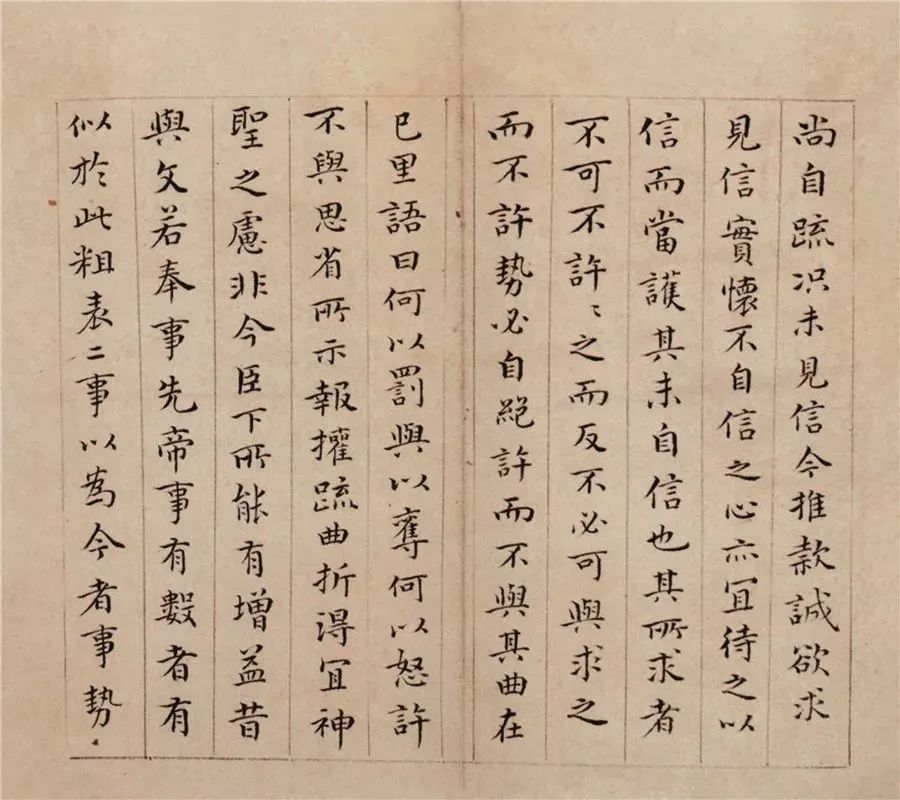 尚自疏况未見信今推款誠欲求
見信實懷不自信之心亦宜待之以
信而當護其未自信也其所求者
不可不許〻之而反不必可與求之
而不許勢必自絕許而不與其曲在
已里語曰何以罰與以奪何以怒許
不與思省所示報權疏曲折得宜神
聖之慮非今臣下所能有增益昔
與文若奉事先帝事有數者有
似於此粗表二事以爲今者事勢